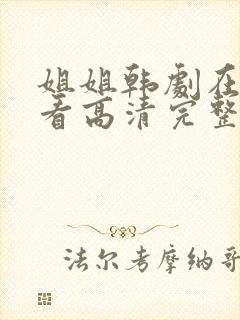 姐姐韩劇在
看高清完整
法尔考摩纳哥